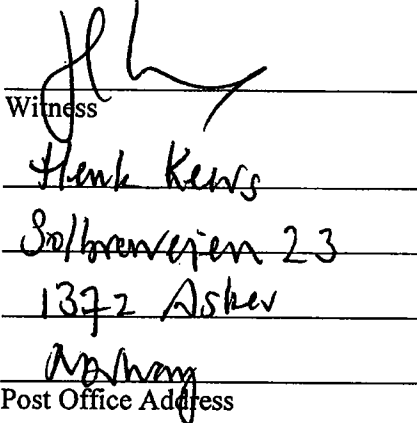 Witness
Henk Kews
Solbrenveien 23
1372 Asker
Norway
Post Office Address